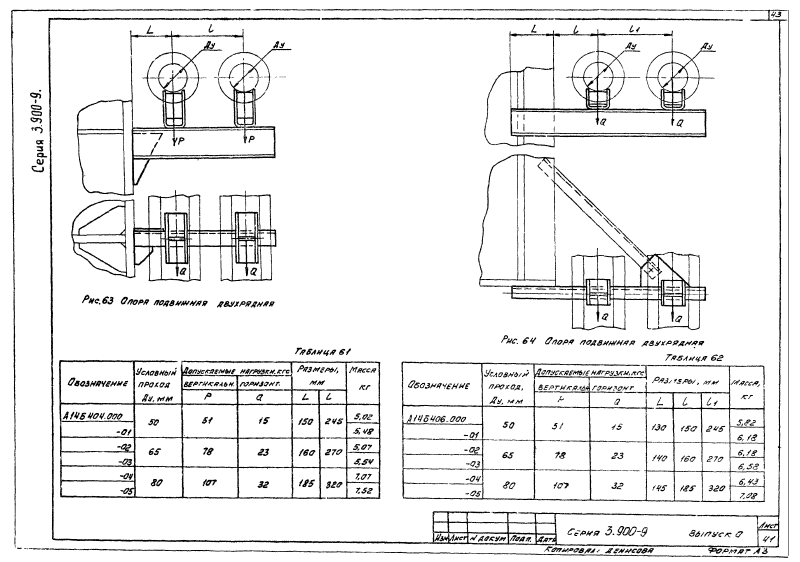 43
Серия 3.900-9.
L l
Ду Ду
P P
Q Q
Рис.63 Опора подвижная двухрядная
L l l1
Ду Ду
Q Q
Q
Рис. 64 Опора подвижная двухрядная
Таблица 61
Обозначение | Условный проход Ду, мм | Допускаемые нагрузки, кгс | Размеры, мм | Масса кг
вертикальн. P | горизонт. Q | L | l
А14Б404.000 | 50 | 51 | 15 | 150 | 245 | 5,02
-01 | 5,48
-02 | 65 | 78 | 23 | 160 | 270 | 5,07
-03 | 5,54
-04 | 80 | 107 | 32 | 185 | 320 | 7,07
-05 | 7,52
Таблица 62
Обозначение | Условный проход, Ду, мм | Допускаемые нагрузки, кгс | Размеры, мм | Масса, кг
вертикальн. P | горизонт. Q | L | l | l1
А14Б406.000 | 50 | 51 | 15 | 130 | 150 | 245 | 5,82
-01 | 6,18
-02 | 65 | 78 | 23 | 140 | 160 | 270 | 6,18
-03 | 6,52
-04 | 80 | 107 | 32 | 145 | 185 | 320 | 6,43
-05 | 7,08
Изм Лист № докум Подп. Дата
Серия 3.900-9 выпуск 0
Лист
41
Копировал: Денисова Формат А3